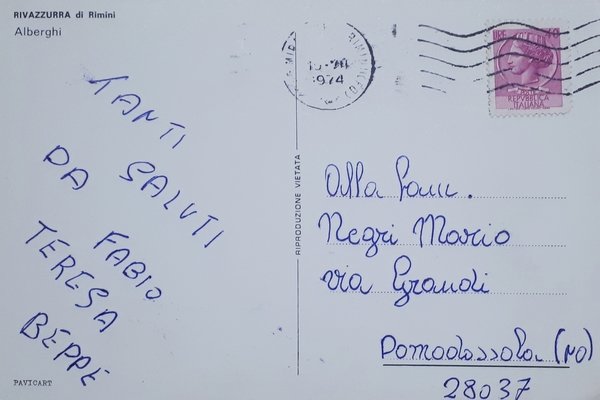 RIVAZZURRA di Rimini
Alberghi
TANTI
SALUTI
DA FABIO
TERESA
BEPPE
PAVICART
RIPRODUZIONE VIETATA
1974
LIRE 40
REPVBBLICA
ITALIANA
Alla Fam.
Negri Mario
via Grandi
Domodossola (NO)
28037